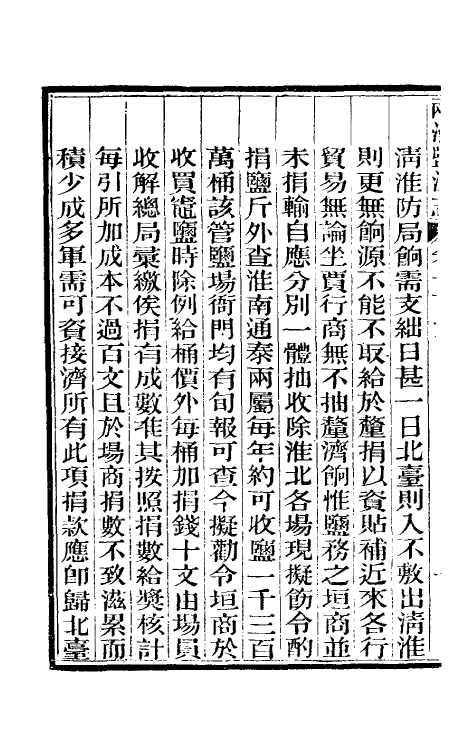 清淮防局餉需支絀日甚一日北臺則入不敷出清淮
則更無餉源不能不取給於釐捐以資貼補近來各行
貿易無論坐賈行商無不抽釐濟餉惟鹽務之垣商並
未捐輸自應分別一體抽收除淮北各場現擬飭令酌
捐鹽斤外查淮南通泰兩屬每年約可收鹽一千三百
萬桶該管鹽場衙門均有旬報可查今擬勸令垣商於
收買竈鹽時除例給桶價外每桶加捐錢十文由場員
收解總局彙繳俟捐有成數准其按照捐數給獎核計
每引所加成本不過百文且於場商捐數不致滋累而
積少成多軍需可資接濟所有此項捐款應卽歸北臺